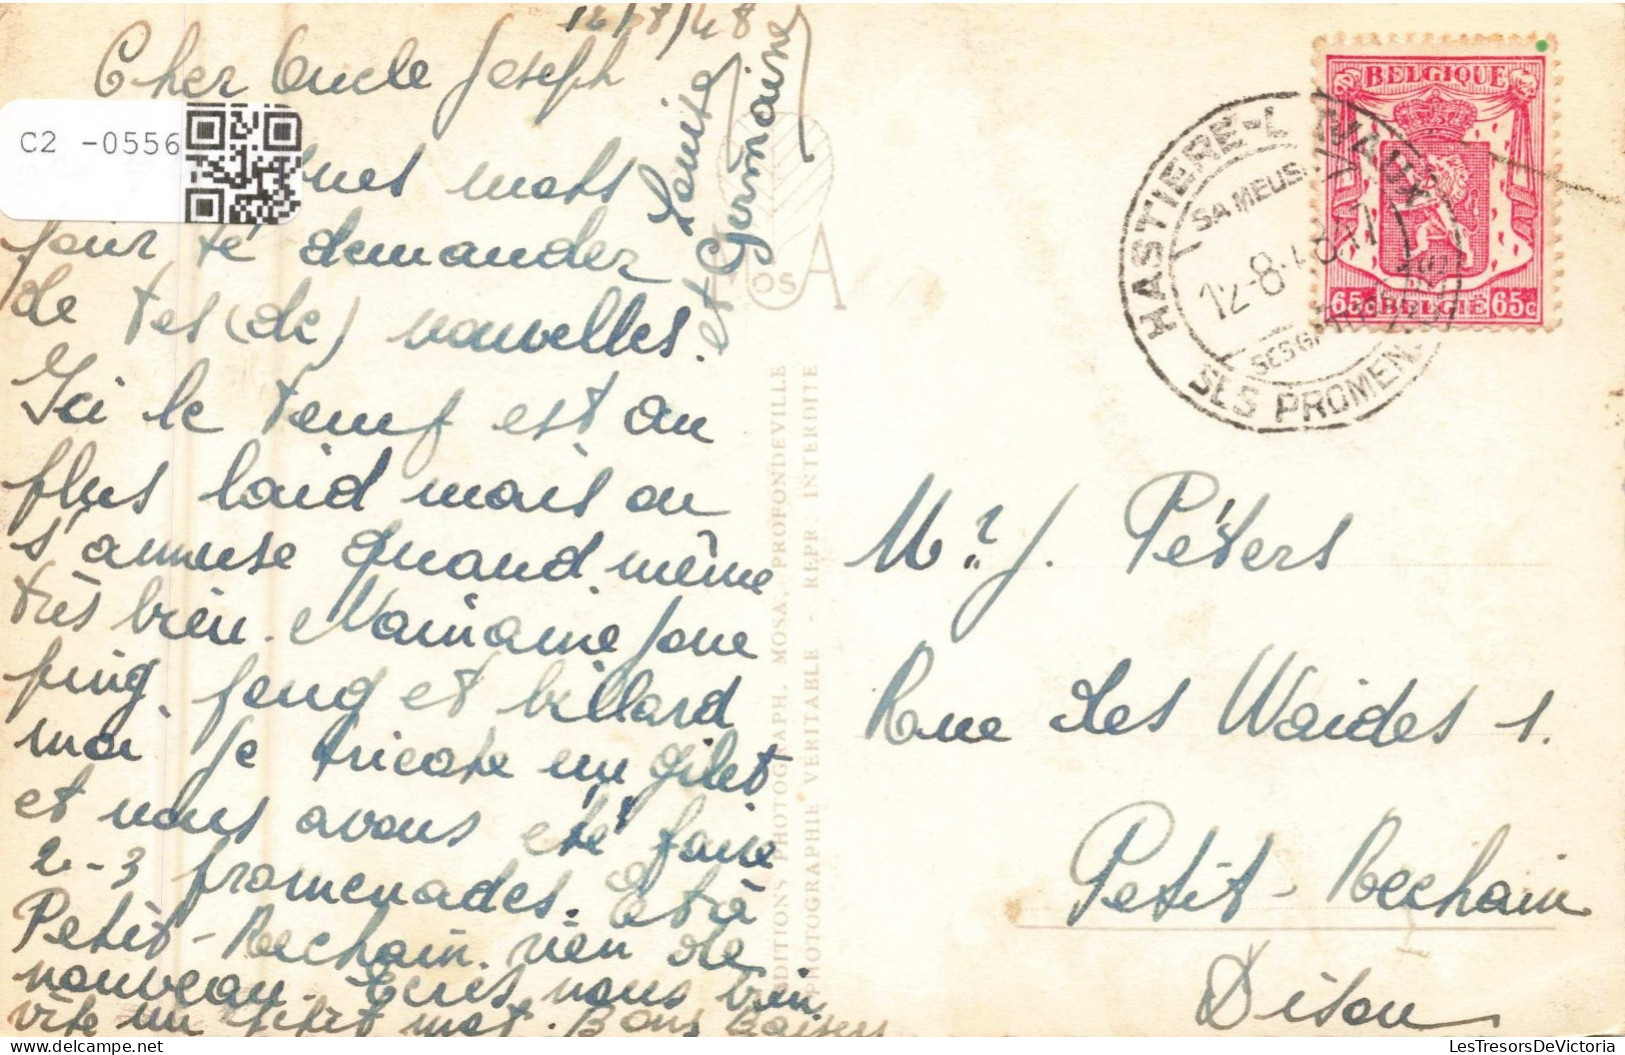 12/8/48
Cher Oncle Joseph
C2 -0556
mots
pour te demander
de tes (de) nouvelles.
Ici le temps est au
plus laid mais on
s'amuse quand même
très bien. Mainaine joue
ping pong et billard
moi je tricote un gilet
et nous avons été faire
2-3 promenades. Et à
Petit-Rechain rien de
nouveau. Ecris nous bien
vite un petit mot. Bons Baisers
et Germaine
EDITIONS PHOTOGRAPH. MOSA, PROFONDEVILLE
PHOTOGRAPHIE VÉRITABLE - REPR. INTERDITE
OS A
BELGIQUE
65c BELGIE 65c
HASTIERE-L AVAUX
SA MEUS
12-8-48
SES PROMEN
Mr J. Péters
Rue Les Waides 1.
Petit-Rechain
Dison
LesTresorsDeVictoria
www.delcampe.net